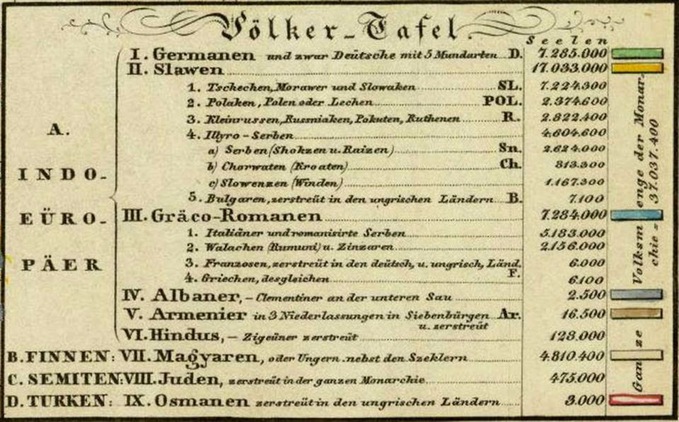 Völker-Tafel.
Seelen
I. Germanen und zwar Deütsche mit 5 Mundarten D. 7.285.000
II. Slawen 17.033.000
1. Tschechen, Morawer und Slowaken SL. 7.224.300
2. Polaken, Polen oder Lechen POL. 2.374.600
3. Kleinrussen, Russniaken, Pokuten, Ruthenen R. 2.822.400
4. Illyro-Serben 4.604.600
a) Serben (Shokzen u. Raizen) Sn. 2.624.000
b) Chorwaten (Kroaten) Ch. 813.300
c) Slowenzen (Winden) 1.167.300
5. Bulgaren, zerstreüt in den ungrischen Ländern B. 7.100
III. Gräco-Romanen 7.284.000
1. Italiäner und romanisirte Serben 5.183.000
2. Walachen (Rumuni) u. Zinzaren 2.156.000
3. Franzosen, zerstreüt in den deütsch, u. ungrisch, Länd. F. 6.000
4. Griechen, desgleichen 6.100
IV. Albaner, – Clementiner an der unteren Sau 2.500
V. Armenier in 3 Niederlassungen in Siebenbürgen Ar. 16.500
u. zerstreüt
VI. Hindus, – Zigeüner zerstreüt 128.000
A.
INDO-
EÜRO-
PÄER
B. FINNEN: VII. Magyaren, oder Ungern nebst den Szeklern 4.810.400
C. SEMITEN: VIII. Juden, zerstreüt in der ganzen Monarchie 475.000
D. TURKEN: IX. Osmanen zerstreüt in den ungrischen Ländern 3.000
Ganze Volksmenge der Monar-
chie = 37.037.400